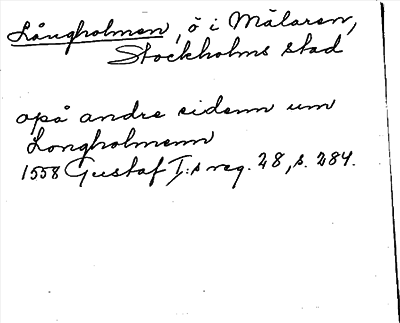 Långholmen, ö i Mälaren,
Stockholms stad
opå andre sidenn um
Longholmenn
1558 Gustaf I:s reg. 28, s. 284.